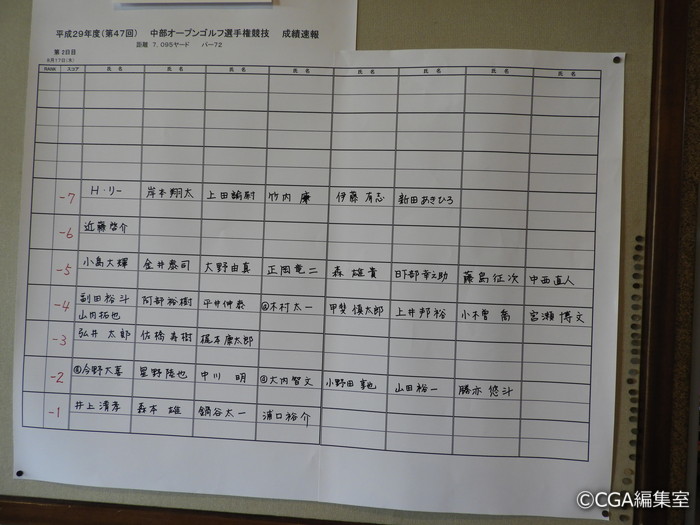 平成29年度(第47回) 中部オープンゴルフ選手権競技 成績速報
距離 7,095ヤード パー72
第2日目
RANK スコア 氏名 氏名 氏名 氏名 氏名 氏名 氏名 氏名
-7 H・リー 岸本翔太 上田諭尉 竹内廉 伊藤有志 新田あきひろ
-6 近藤啓介
-5 小島大輝 金井泰司 大野由真 正岡竜二 森雄貴 日下部幸之助 藤島征次 中西直人
-4 副田裕斗 阿部裕樹 平井伸泰 ⓐ木村太一 甲斐慎太郎 上井邦裕 小木曽喬 宮瀬博文
山内拓也
-3 弘井太郎 佐橋寿樹 梶本康太郎
-2 ⓐ今野大喜 星野隆也 中川明 ⓐ大内智文 小野田享也 山田裕一 勝亦悠斗
-1 井上清孝 森本雄 鍋谷太一 浦口裕介
©CGA編集室